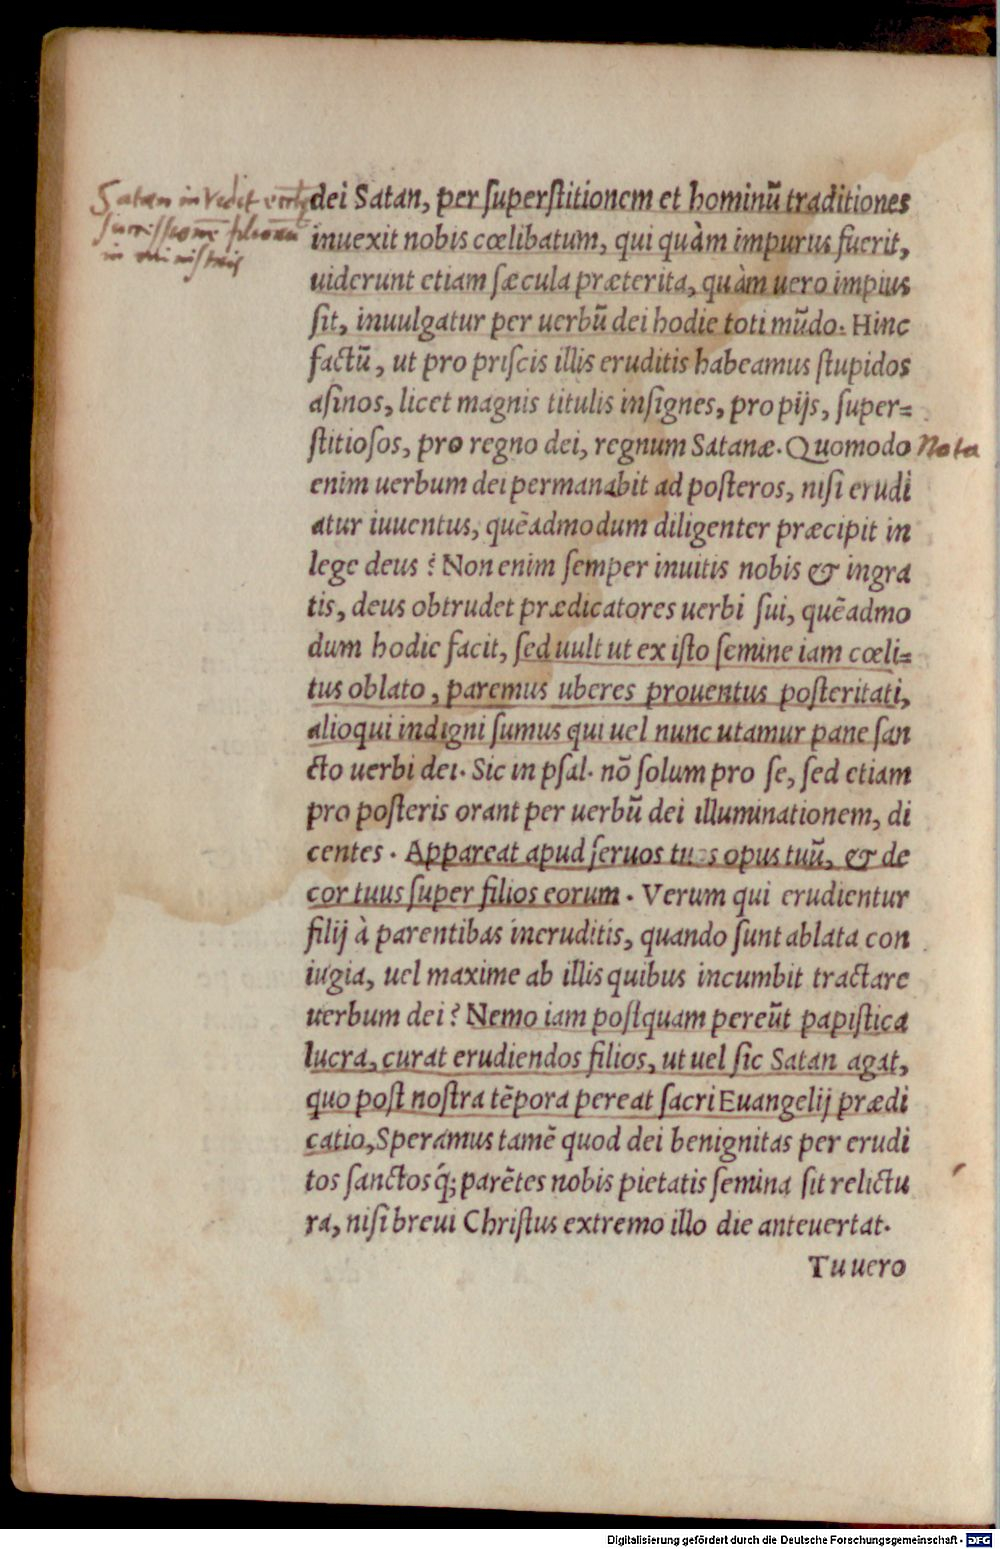 Satan in
in ministris
dei Satan, per ſuperſtitionem et hominũ traditiones
inuexit nobis cœlibatum, qui quàm impurus fuerit,
uiderunt etiam ſæcula præterita, quàm uero impius
ſit, inuulgatur per uerbũ dei hodie toti mũdo. Hinc
factũ, ut pro priſcis illis eruditis habeamus ſtupidos
aſinos, licet magnis titulis inſignes, pro pijs, ſuper=
ſtitioſos, pro regno dei, regnum Satanæ. Quomodo
Nota
enim uerbum dei permanabit ad poſteros, niſi erudi
atur iuuentus, quẽadmodum diligenter præcipit in
lege deus? Non enim ſemper inuitis nobis & ingra
tis, deus obtrudet prædicatores uerbi ſui, quẽadmo
dum hodie facit, ſed uult ut ex iſto ſemine iam cœli=
tus oblato, paremus uberes prouentus poſteritati,
alioqui indigni ſumus qui uel nunc utamur pane ſan
cto uerbi dei. Sic in pſal. nõ ſolum pro ſe, ſed etiam
pro poſteris orant per uerbũ dei illuminationem, di
centes. Appareat apud ſeruos tuos opus tuũ, & de
cor tuus ſuper filios eorum. Verum qui erudientur
filij à parentibus ineruditis, quando ſunt ablata con
iugia, uel maxime ab illis quibus incumbit tractare
uerbum dei? Nemo iam poſtquam pereũt papiſtica
lucra, curat erudiendos filios, ut uel ſic Satan agat,
quo poſt noſtra tẽpora pereat ſacri Euangelij prædi
catio, Speramus tamẽ quod dei benignitas per erudi
tos ſanctosq́; parẽtes nobis pietatis ſemina ſit relictu
ra, niſi breui Chriſtus extremo illo die anteuertat.
Tu uero
Digitalisierung gefördert durch die Deutsche Forschungsgemeinschaft - DFG